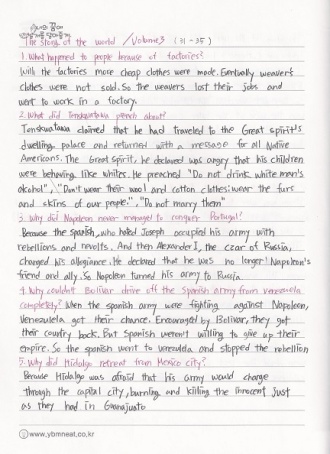 The Story of the world / Volume3 (31-35)
1. What happened to people because of factories?
With the factories more cheap clothes were made. Eventually weaver's
clothes were not sold. So the weavers lost their jobs and
went to work in a factory.
2. What did Tenskwatawa preach about?
Tenskwatawa claimed that he had traveled to the Great spirit's
dwelling palace and returned with a message for all Native
Americans. The Great spirit, he declared was angry that his children
were behaving like whites. He preached "Do not drink white man's
alcohol", "Don't wear their wool and cotton clothes: wear the furs
and skins of our people.", "Do not marry them"
3. Why did Napoleon never managed to conquer Portugal?
Because the spanish, who hated Joseph occupied his army with
rebellions and revolts. And then Alexander I, the czar of Russia,
changed his allegiance. He declared that he was no longer Napoleon's
friend and ally. So Napoleon turned his army to Russia
4. Why couldn't Bolivar drive off the Spanish army from venezuela
completely? When the spanish army were fighting against Napoleon,
Venezuela got their chance. Encouraged by Bolivar, they got
their country back. But Spanish weren't willing to give up their
empire. So the spanish went to venezuela and stopped the rebellion
5. Why did Hidalgo retreat from Mexico city?
Because Hidalgo was afraid that his army would charge
through the capital city, burning and killing the innocent Just
as they had in Guanajuato
www.ybmneat.co.kr